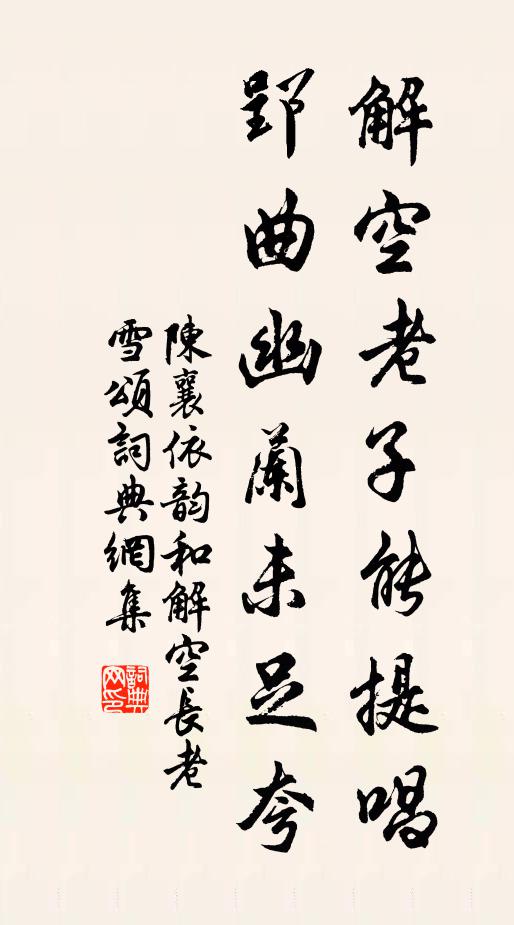 解空老子能提唱
郢曲幽蘭未足夸
陳襄依韵和解空長老
雪頌詞典網集
詞典
网印